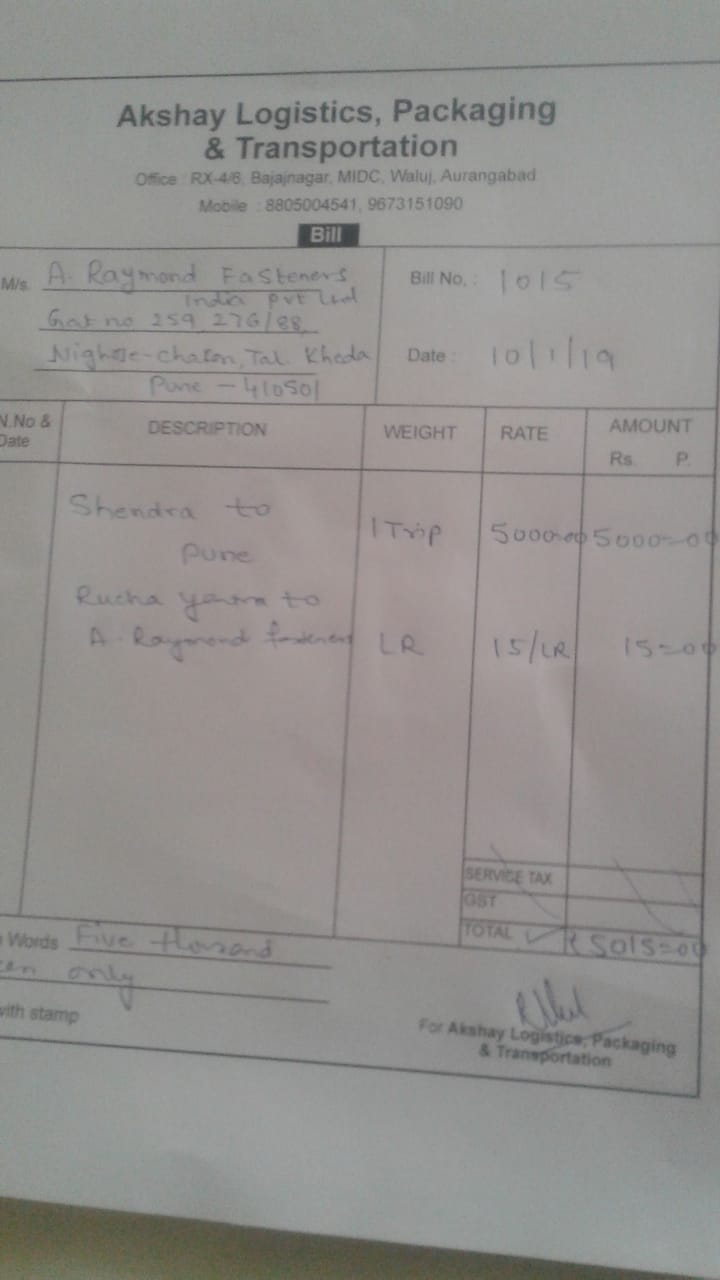 Akshay Logistics, Packaging
& Transportation
Office : RX-4/6, Bajajnagar, MIDC, Waluj, Aurangabad
Mobile : 8805004541, 9673151090
Bill
M/s. A. Raymond Fasteners
India Pvt Ltd
Gat no 259 276/88,
Nighoje-Chakan, Tal. Kheda
Pune - 410501
Bill No. : 1015
Date : 10/1/19
N.No & Date DESCRIPTION WEIGHT RATE AMOUNT
Rs. P.
Shendra to
Pune 1 Trip 5000=00 5000=00
Rucha to
A. Raymond LR 15/LR 15=00
SERVICE TAX
GST
TOTAL ₹ 5015=00
Words Five
only
with stamp
For Akshay Logistics, Packaging
& Transportation